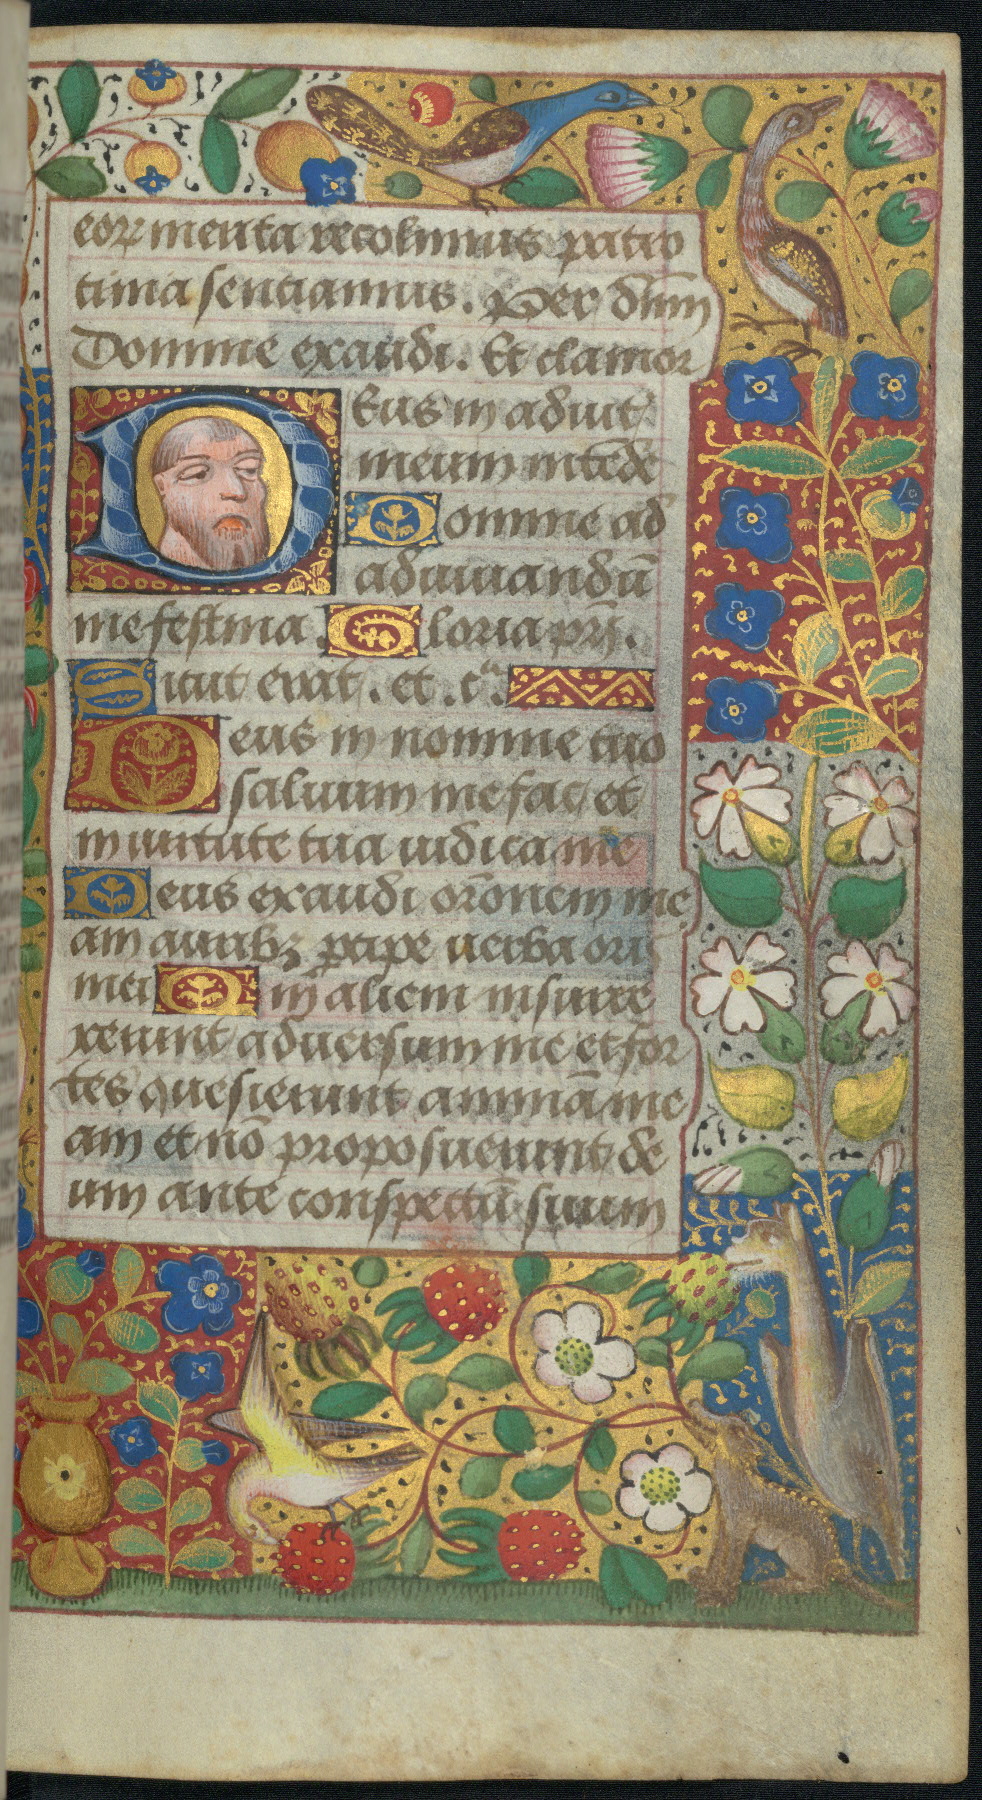 eoꝝ merita recolimus patro
cinia sentiamus. Per dñm
Domine exaudi. Et clamor
Deus in adiut
meum intẽde
Domine ad
adiuuandũ
me festina. Gloria pr̃i.
Sicut erat. et. cᵃ.
Deus in nomine tuo
saluum me fac et
in uirtute tua iudica me
Deus exaudi or̃onem me
am auribꝫ ꝑcipe uerba oris
mei Qm alieni insurre
xerunt aduersum me et for
tes quesierunt animã me
am et nõ proposuerunt de
um ante conspectũ suum